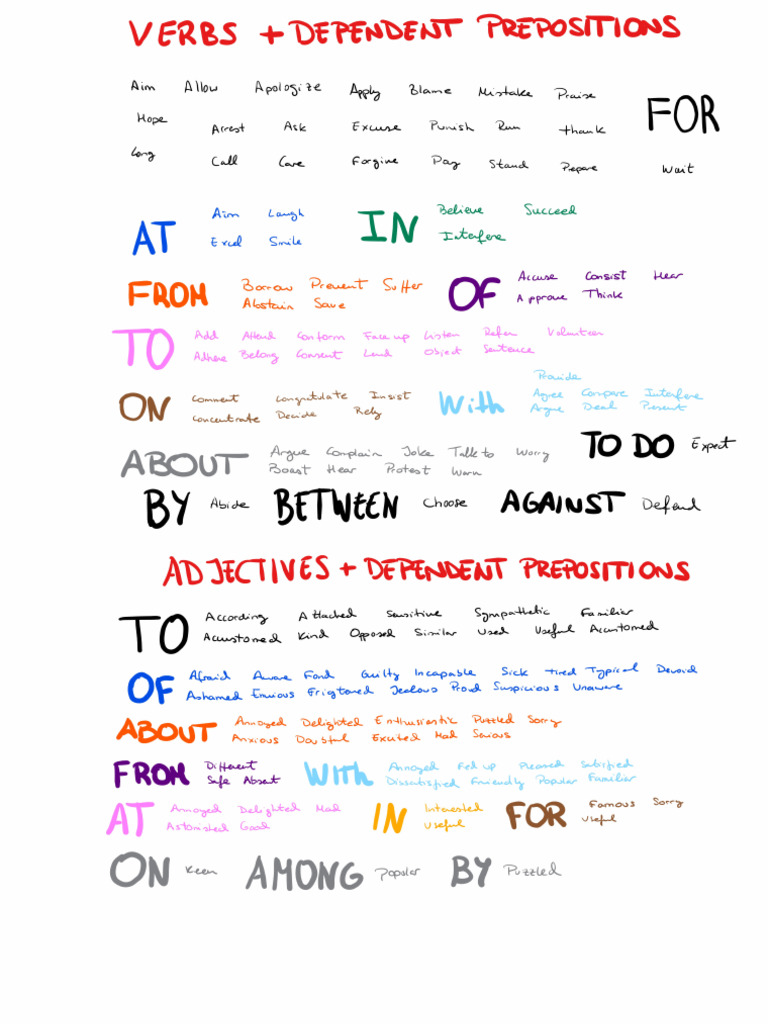 VERBS + DEPENDENT PREPOSITIONS
Aim Allow Apologize Apply Blame Mistake Praise
FOR
Hope Arrest Ask Excuse Punish Run thank
Long Call Care Forgive Pay Stand Prepare Wait
AT
Aim Laugh
Excel Smile
IN
Believe Succeed
Interfere
FROM
Borrow Prevent Suffer
Abstain Save
OF
Accuse Consist Hear
Approve Think
TO
Add Attend Conform Face up Listen Refer Volunteer
Adhere Belong Consent Lend Object Sentence
ON
Comment Congratulate Insist
Concentrate Decide Rely
With
Provide
Agree Compare Interfere
Argue Deal Present
ABOUT
Argue Complain Joke Talk to Worry
Boast Hear Protest Warn
TO DO Expect
BY Abide BETWEEN Choose AGAINST Defend
ADJECTIVES + DEPENDENT PREPOSITIONS
TO
According Attached Sensitive Sympathetic Familier
Accustomed Kind Opposed Similar Used Useful Accuntomed
OF
Afraid Aware Fond Guilty Incapable Sick tired Typical Devoid
Ashamed Envious Frigtored Jealous Proud Suspicious Unaware
ABOUT
Annoyed Delighted Enthusiastic Puzzled Sorry
Anxious Doubtful Excited Mad Serious
FROM
Different
Safe Absent
WITH
Annoyed Fed up Pleased Satisfied
Dissatisfied Friendly Popular Familier
AT
Annoyed Delighted Mad
Astonisted Good
IN
Interested
Useful
FOR
Famous Sorry
Useful
ON Keen AMONG Popular BY Puzzled